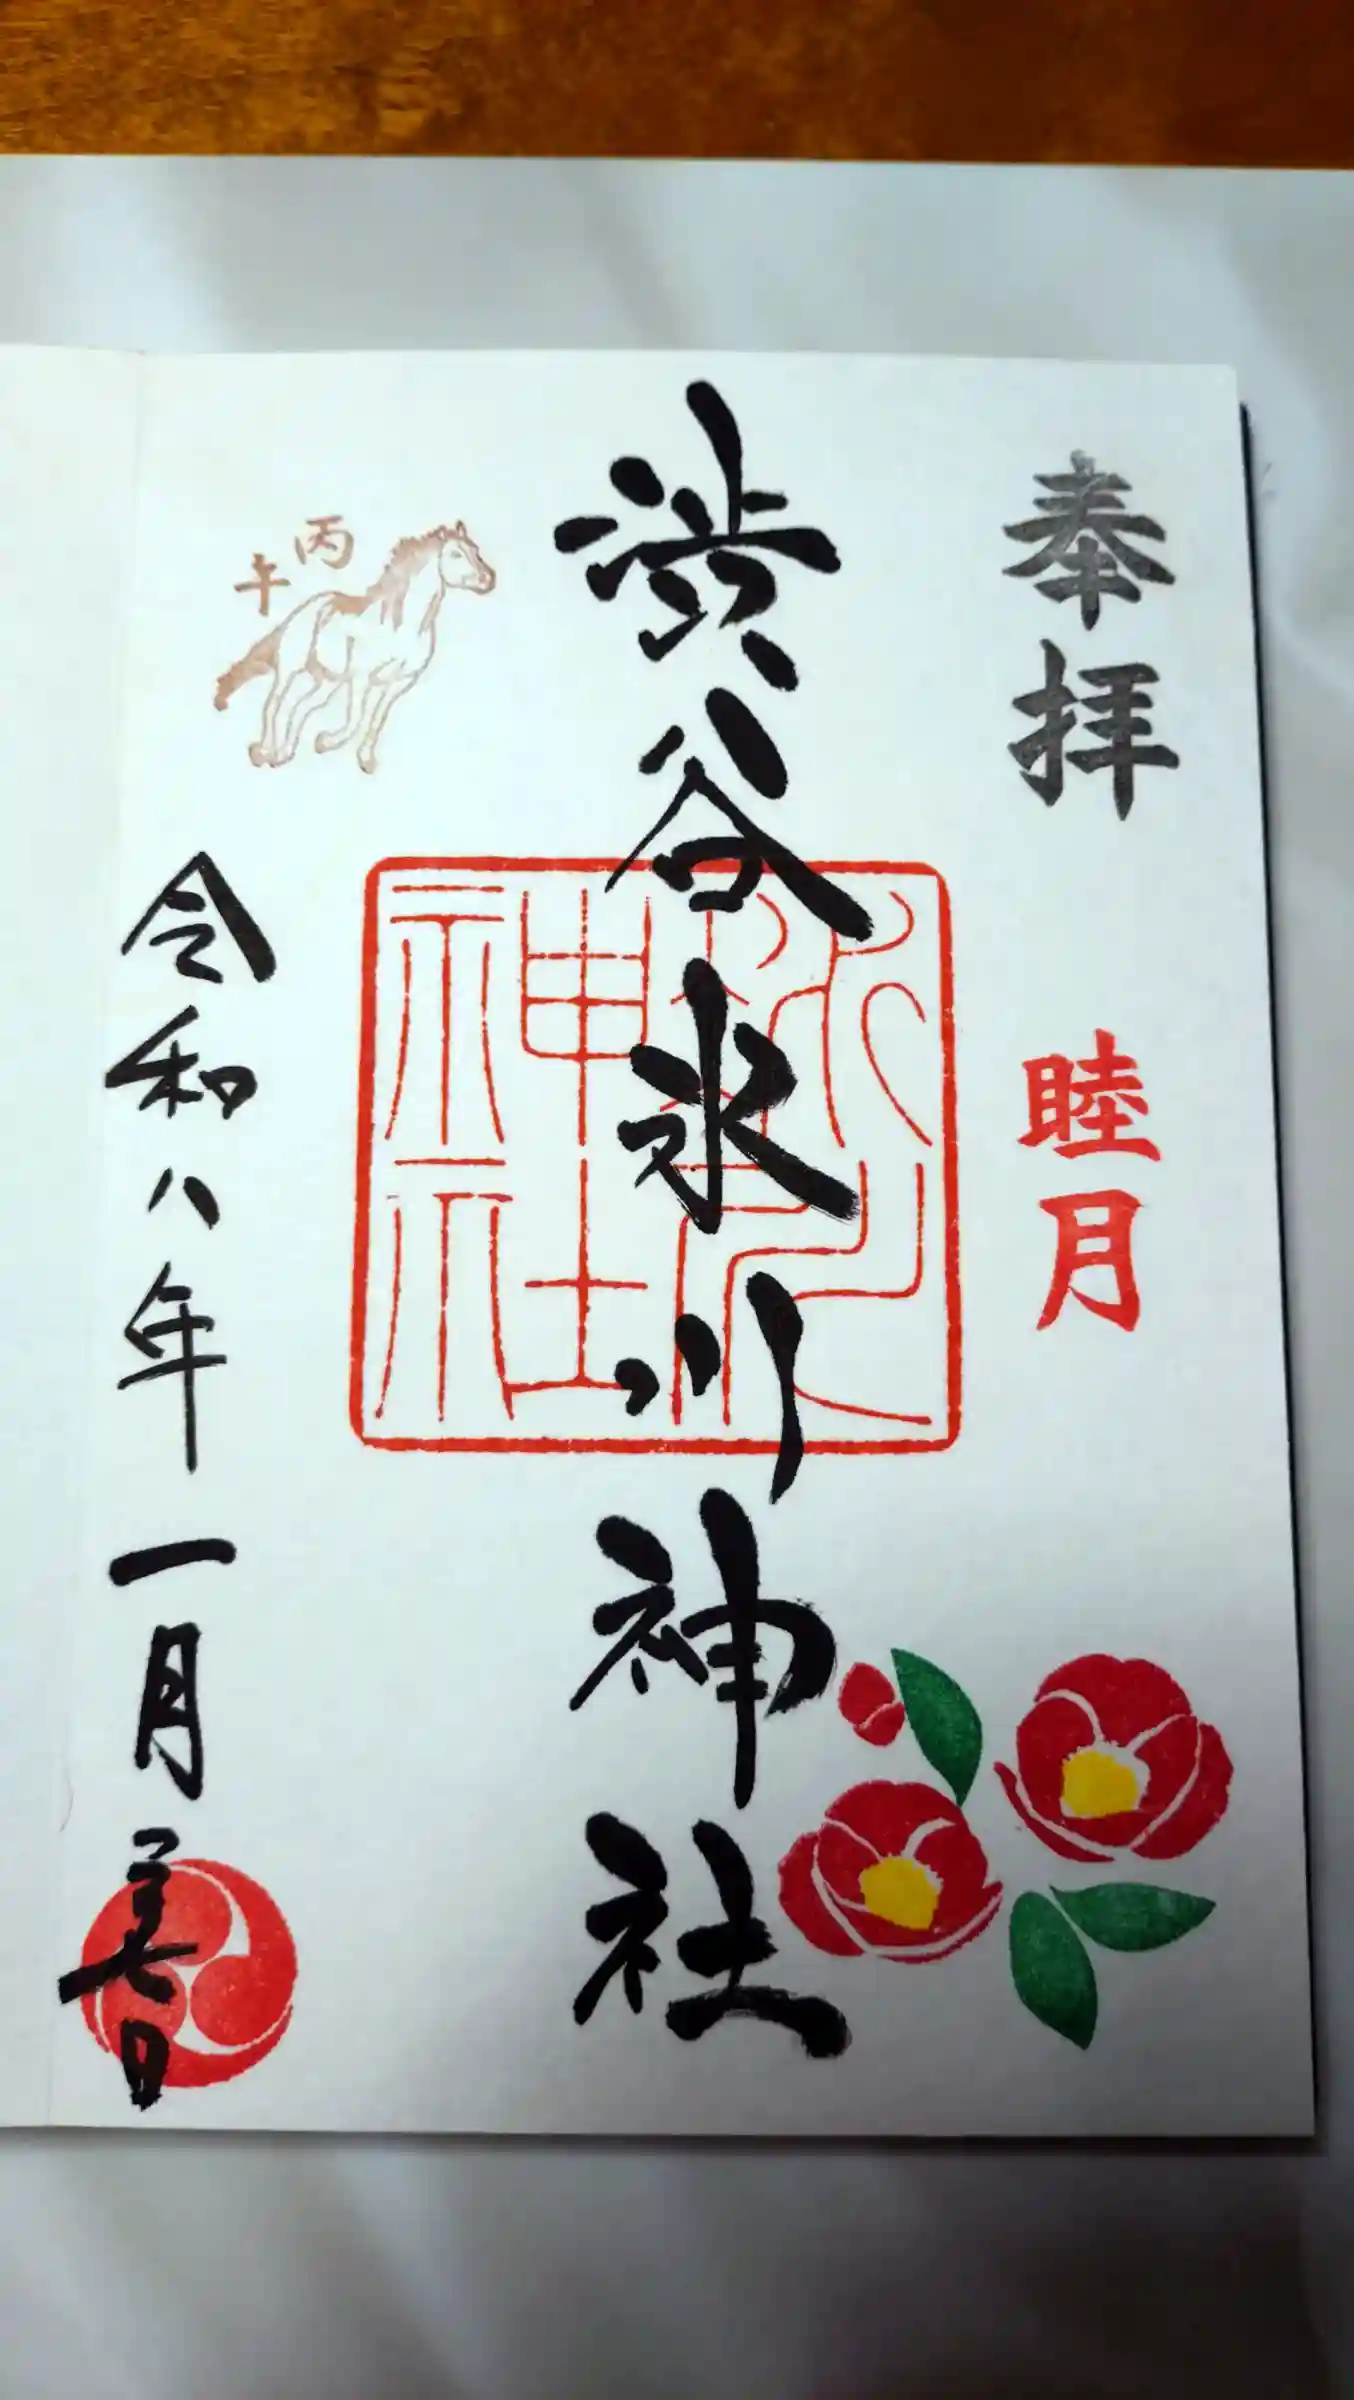 奉拝
睦月
渋谷氷川神社
氷川
神社
丙
午
令和八年一月二十七日